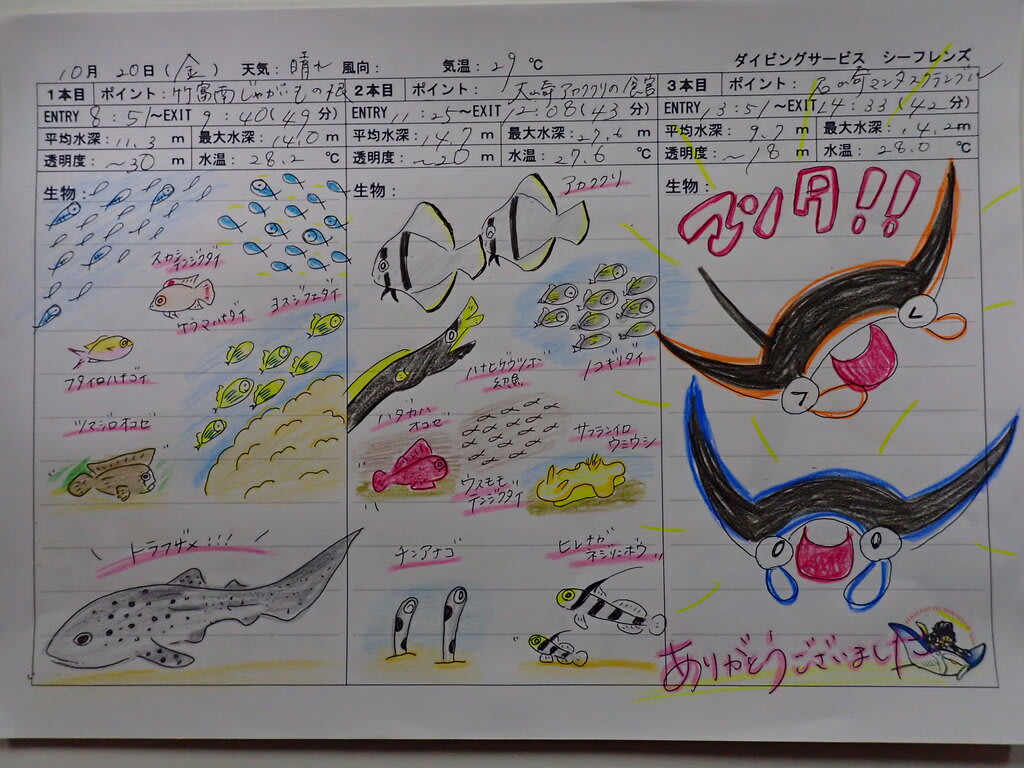 10月 20日(金) 天気:晴れ 風向: 気温:29℃ ダイビングサービス シーフレンズ
1本目 ポイント:竹富南じゃがいもの根
ENTRY 8:51～EXIT 9:40(49分)
平均水深:11.3m 最大水深:14.0m
透明度:～30m 水温:28.2℃
生物:
スカシテンジクダイ
ケラマハナダイ
ヨスジフエダイ
フタイロハナゴイ
ツマジロオコゼ
トラフザメ!!!
2本目 ポイント:大崎アカククリの宮
ENTRY 11:25～EXIT 12:08(43分)
平均水深:14.7m 最大水深:27.6m
透明度:～20m 水温:27.6℃
生物:
アカククリ
ハナヒゲウツボ
幼魚
ノコギリダイ
ハダカハ
オコゼ
ウスモモ
テンジクダイ
サフランイロ
ウミウシ
チンアナゴ
ヒレナガ
ネジリンボウ
3本目 ポイント:石崎マンタスクランブル
ENTRY 13:51～EXIT 14:33(42分)
平均水深:9.7m 最大水深:14.2m
透明度:～18m 水温:28.0℃
生物:
マンタ!!
ありがとうございました